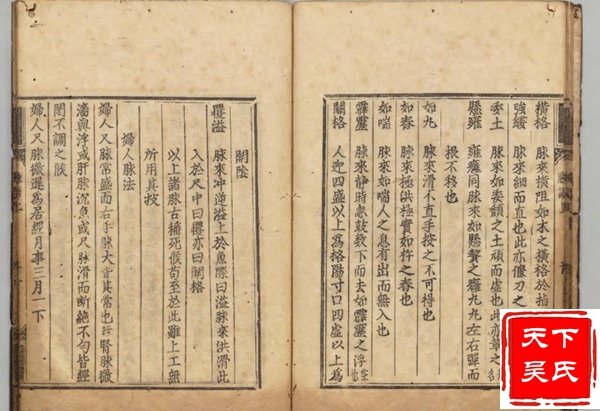 橫格 脉來橫阻如木之橫格於指
強緩 脉來細而直也此亦偃刀之
委土 脉來如委頹之土頑而虛也此亦革之名
懸雍 雍癰同脉來如懸贅之癰九九左右彈而
根不移也
如丸 脉來滑不直手按之不可得也
如舂 脉來極洪極實如杵之舂也
如喘 脉來如喘人之息有出而無入也
霹靂 脉來静時忽鼓數下而去如霹靂之浮空
關格 人迎四盛以上爲格陽寸口四盛以上爲
關陰
覆溢 脉來冲逆溢上於魚際曰溢脉來洪滑此
入於尺中曰覆亦曰關格
以上諸脉古稱死候苟至於此雖上工無
所用其技
婦人脉法
婦人尺脉常盛而右手脉大皆其常也若腎脉微
濇與浮或肝脉沉急或尺脉滑而断絶不匀皆經
閉不調之脉
婦人尺脉微遲爲居經月事三月一下
天下
吳氏